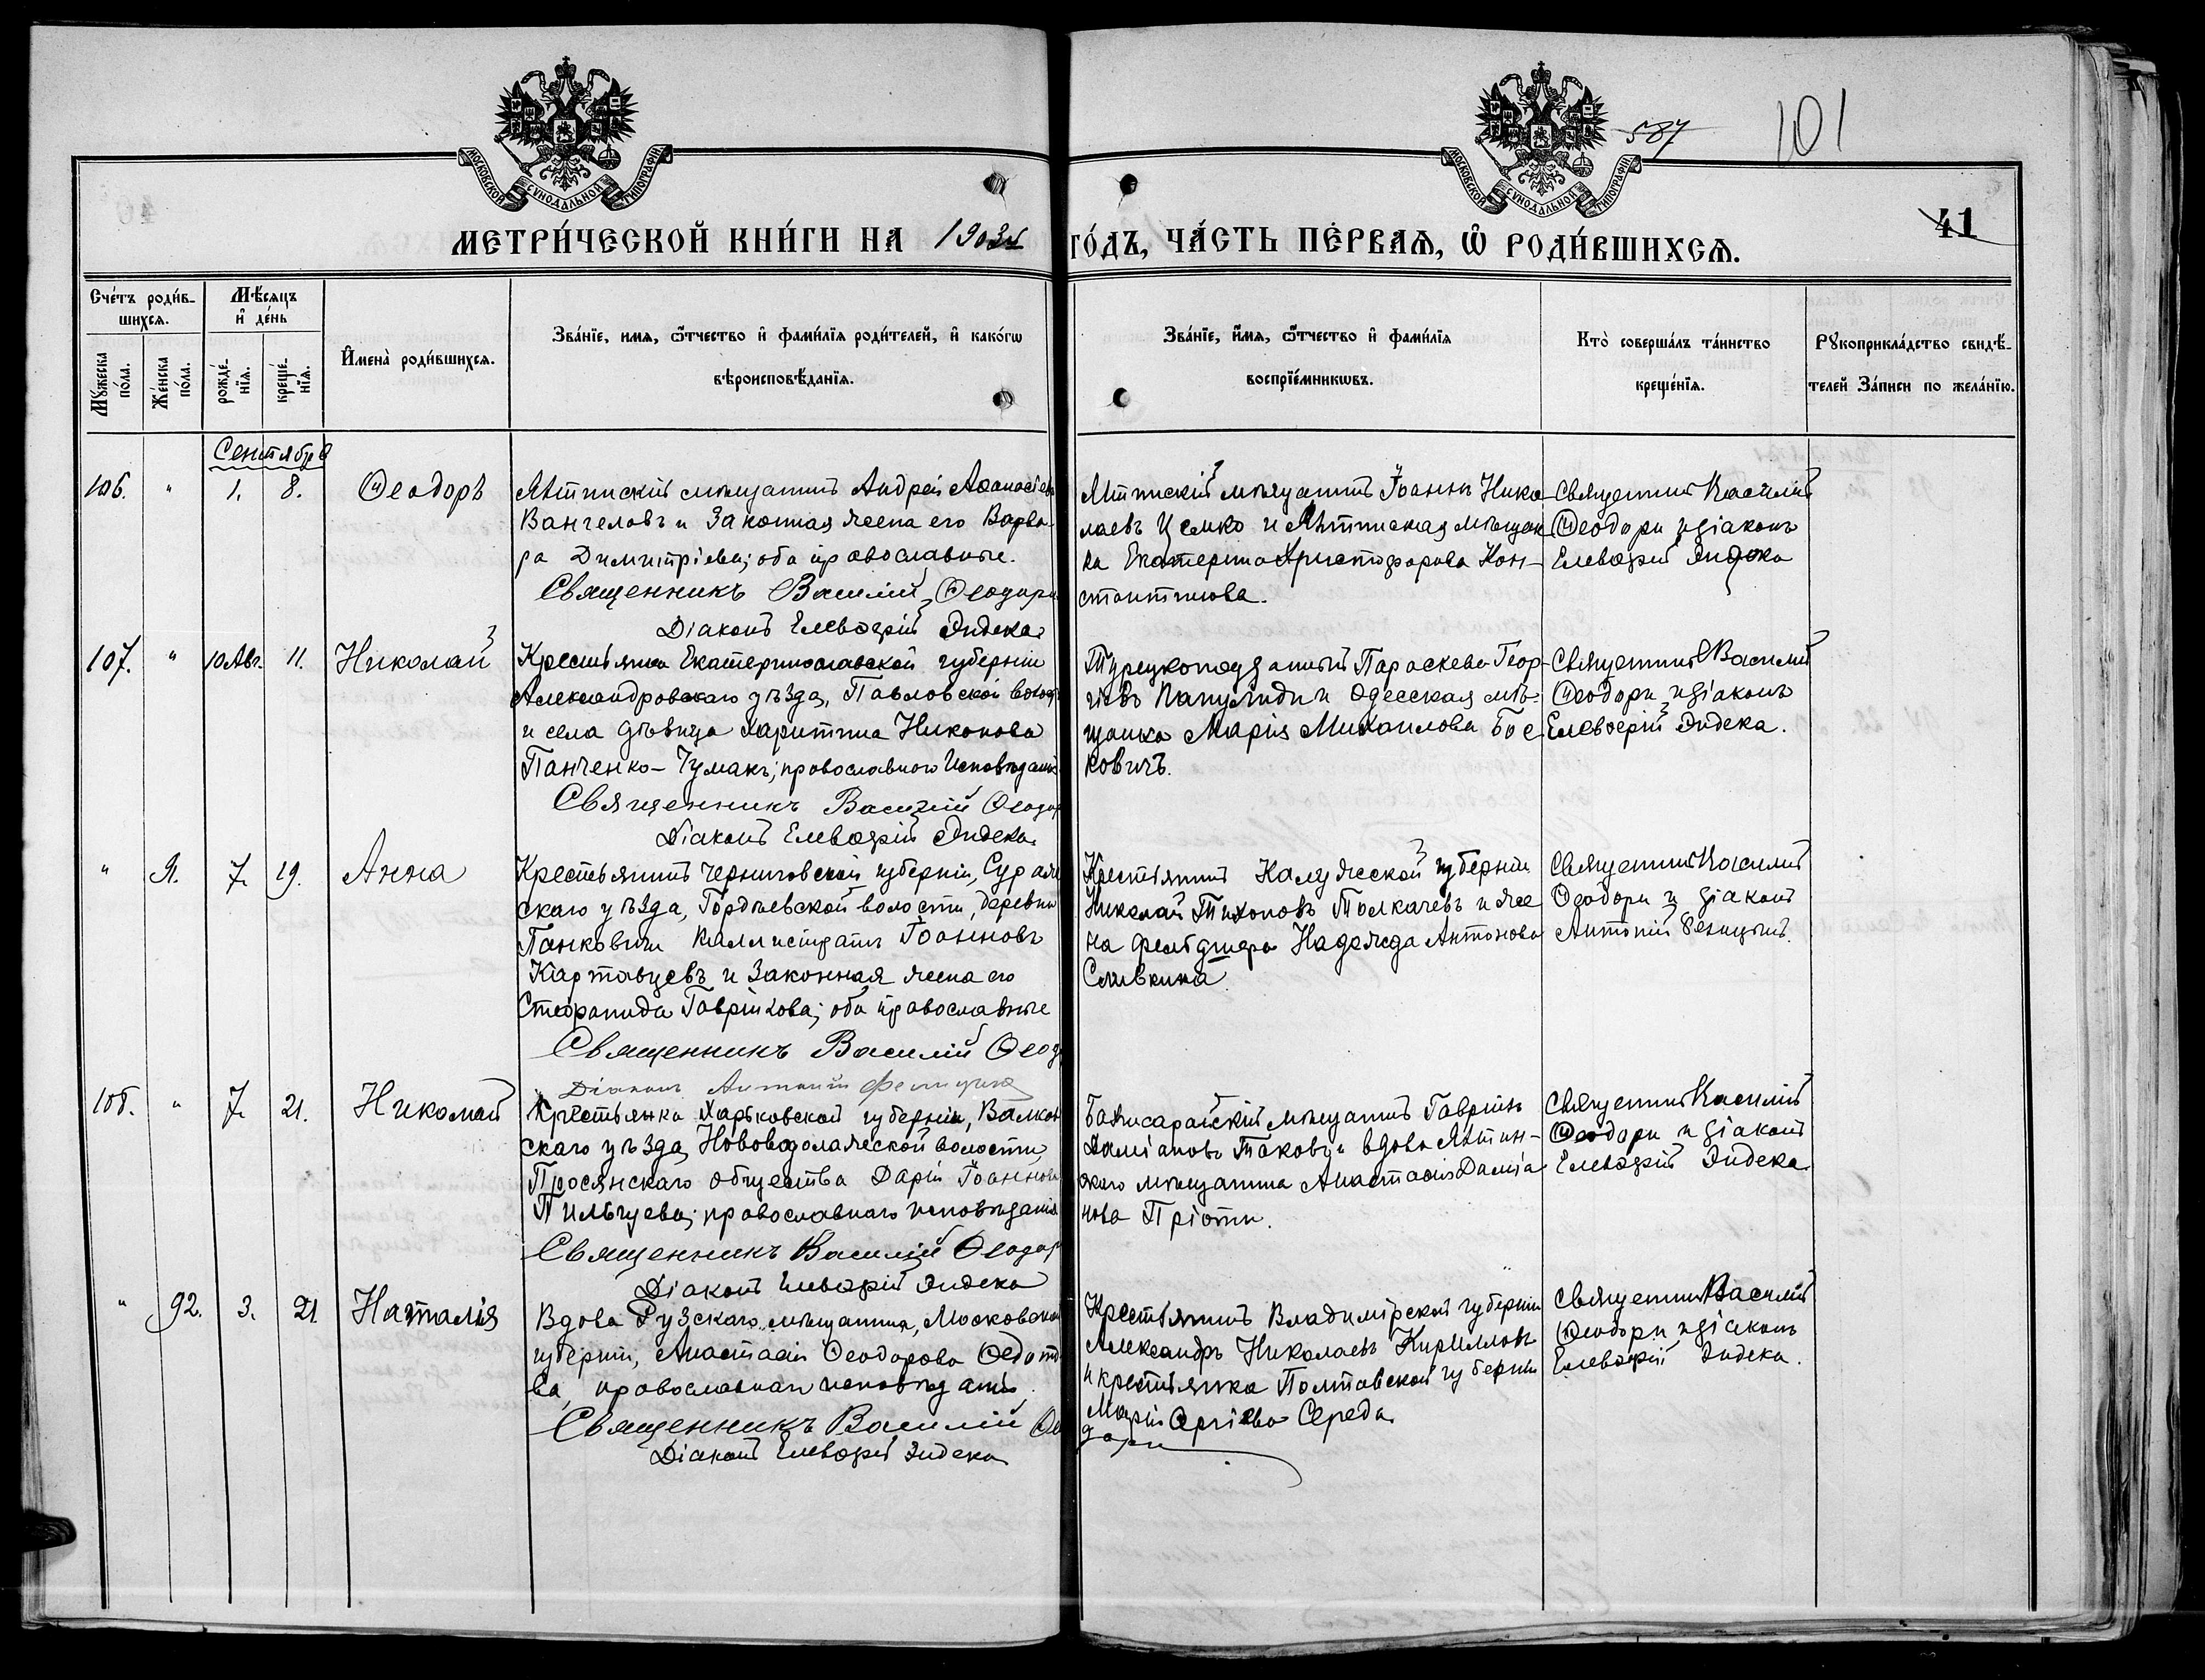 МОСКОВСКОЙ СѴНОДАЛЬНОЙ ТИПОГРАФІИ
МОСКОВСКОЙ СѴНОДАЛЬНОЙ ТИПОГРАФІИ
587
101
41
МЕТРИ́ЧЕСКОЙ КНИ́ГИ НА 1903
ГО́ДЪ, ЧА́СТЬ ПЕ́РВАЯ, Ѡ РОДИ́ВШИХСЯ.
Сче́тъ роди́в-
шихся.
Мѣ́сяцъ
и де́нь
Мꙋ́жеска
по́ла.
Же́нска
по́ла.
рожде́-
нїя.
креще́-
нїя.
И҆мена̀ роди́вшихся.
Зва́нїе, имя, ѻ҆́тчество и҆ фами́лїя роди́телей, и҆ како́гѡ
вѣроисповѣ́данїя.
Зва́нїе, и҆́мя, ѻ҆́тчество и҆ фами́лїя
воспрїе́мникѡвъ.
Кто̀ соверша́лъ та́инство
креще́нїя.
Рꙋкоприкла́дство свидѣ́-
телей За́писи по жела́нїю.
Сентябрь
106. " 1. 8. Ѳеодоръ
Ялтинскій мѣщанинъ Андрей Аѳанасіевъ
Вангеловъ и законная жена его Варва-
ра Димитріева; оба православные.
Священникъ Василій Ѳеодори
Діаконъ Елевѳерій Эндека
Ялтинскій мѣщанинъ Іоаннъ Нико-
лаевъ Цемко и Ялтинская мѣщан
ка Екатерина Христофорова Кон-
стантинова.
Священникъ Василій
Ѳеодори и діаконъ
Елевѳерій Эндека
107. " 10 Авг. 11. Николай
Крестьянка Екатеринославской губерніи
Александровскаго уѣзда, Павловской волост
и села дѣвица Харитина Никонова
Панченко-Чумакъ; православнаго исповѣданія
Священникъ Василій Ѳеодор
Діаконъ Елевѳерій Эндека
Турецкоподданный Параскева Геор-
гіевъ Папулиди и Одесская мѣ-
щанка Марія Михаилова Бос
ковичъ.
Священникъ Василій
Ѳеодори и діаконъ
Елевѳерій Эндека.
" 91. 7. 19. Анна
Крестьянинъ Черниговской губерніи, Сураж
скаго уѣзда, Гордѣевской волости, деревни
Панковки Каллистратъ Іоанновъ
Картавцевъ и законная жена его
Стефанида Гаврилова; оба православные
Священникъ Василій Ѳеод
Діаконъ Антоній
Крестьянинъ Калужской губерніи
Николай Тихоновъ Толкачевъ и же
на фельдшера Надежда Антонова
Сливкина
Священникъ Василій
Ѳеодори и діаконъ
Антоній
108. " 7. 21. Николай
Крестьянка Харьковской губерніи, Валков
скаго уѣзда, Нововодолажской волости,
Просянскаго общества Дарія Іоаннова
Пильгуева; православнаго исповѣданія
Священникъ Василій Ѳеодор
Діаконъ Елевѳерій Эндека
Бахчисарайскій мѣщанинъ Гавріилъ
Даміановъ Таковъ и вдова Ялтин-
скаго мѣщанина Анастасія Даміа
нова Пріоти.
Священникъ Василій
Ѳеодори и діаконъ
Елевѳерій Эндека
" 92. 3. 21. Наталія
Вдова Рузскаго мѣщанина, Московской
губерніи, Анастасія Ѳеодорова Ѳедото
ва, православнаго исповѣданія.
Священникъ Василій Ѳео
дори
Діаконъ Елевѳерій Эндека
Крестьянинъ Владимірской губерніи
Александръ Николаевъ Кирилловъ
и крестьянка Полтавской губерніи
Марія Сергіева Середа
Священникъ Василій
Ѳеодори и діаконъ
Елевѳерій Эндека.